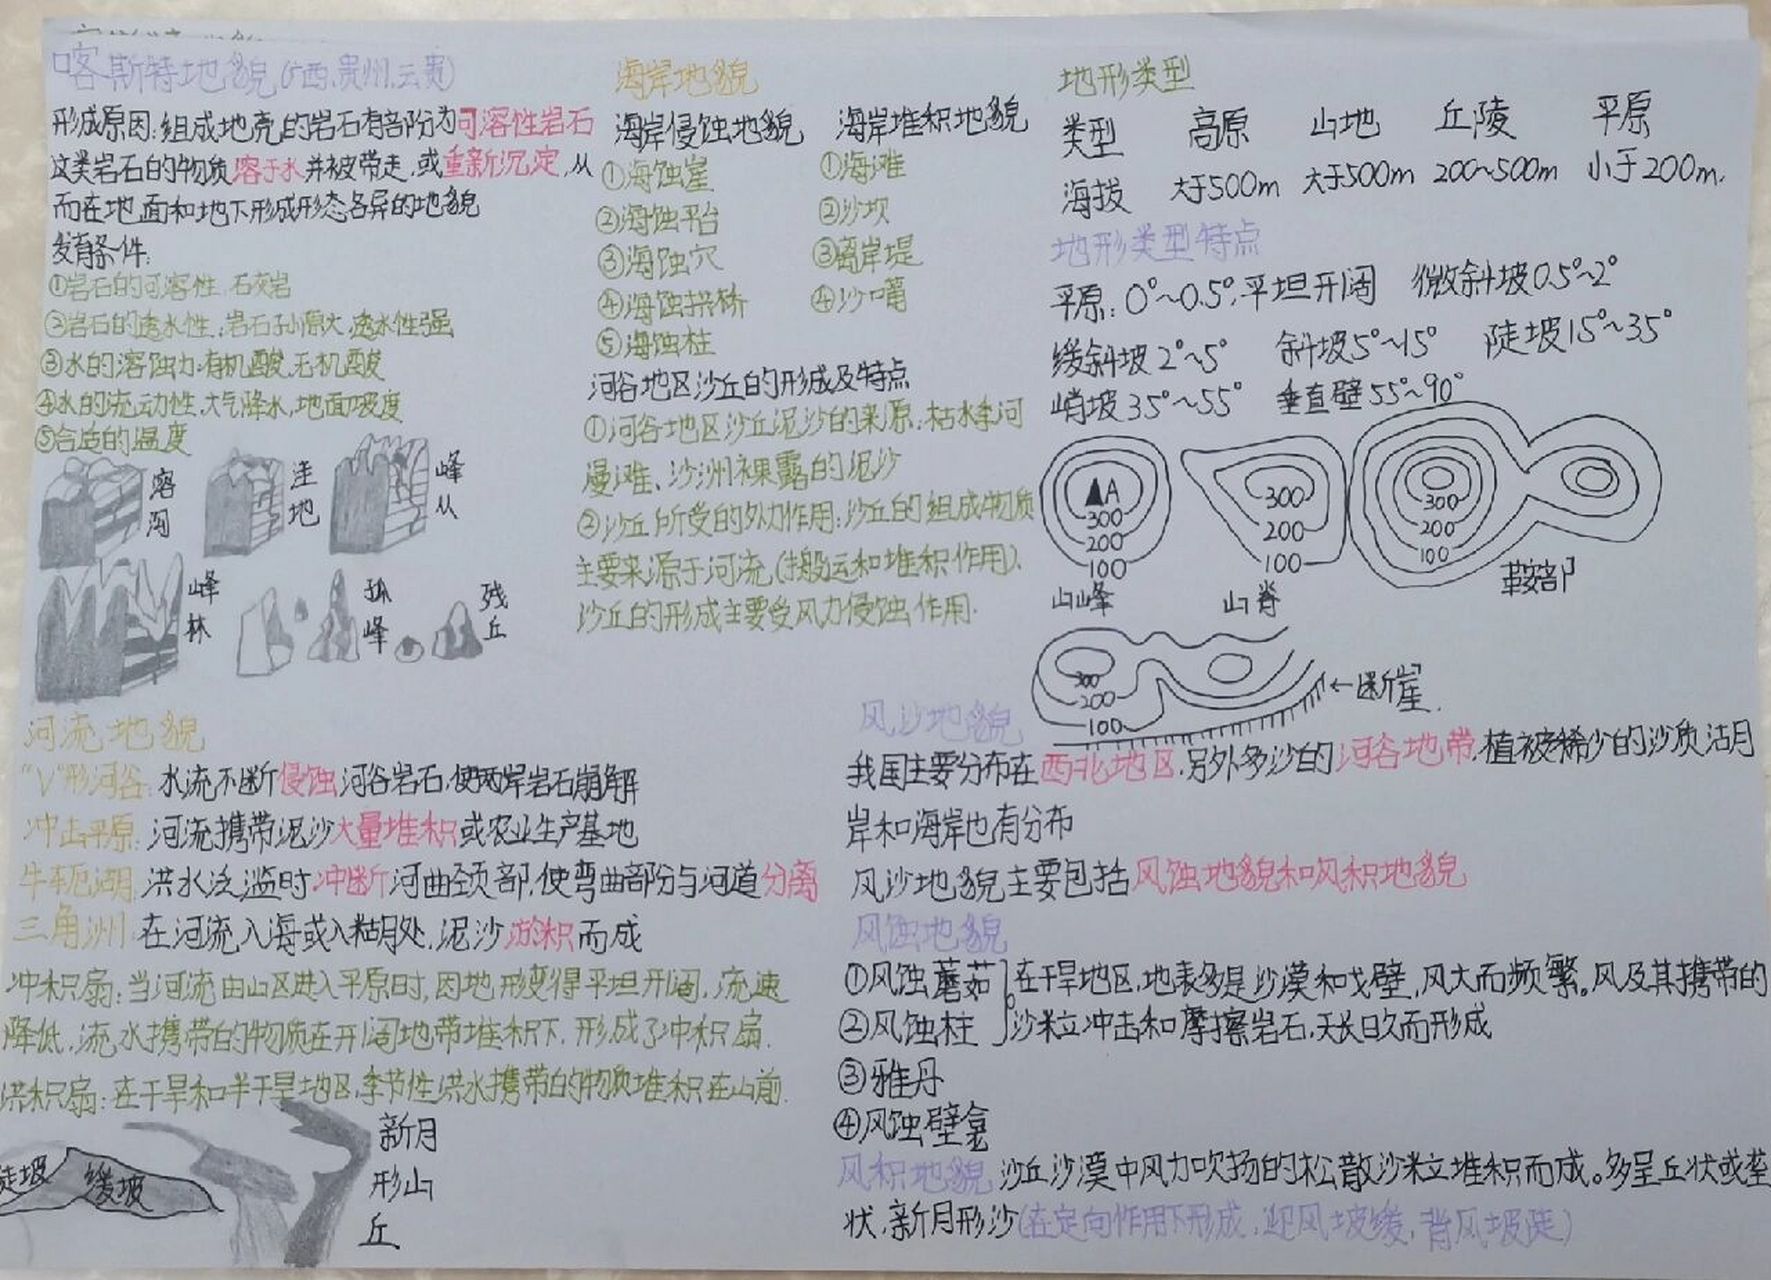 喀斯特地貌(广西、贵州、云贵)
形成原因:组成地壳的岩石有部份为可溶性岩石
这类岩石的物质溶于水并被带走,或重新沉淀,从
而在地面和地下形成形态各异的地貌
发育条件:
①岩石的可溶性,石灰岩
②岩石的透水性:岩石孔隙大,透水性强
③水的溶蚀力:有机酸、无机酸
④水的流动性,大气降水,地面坡度
⑤合适的温度
溶沟
洼地
峰从
峰林
孤峰
残丘
海岸地貌
海岸侵蚀地貌 海岸堆积地貌
①海蚀崖 ①海滩
②海蚀平台 ②沙坝
③海蚀穴 ③离岸堤
④海蚀拱桥 ④沙嘴
⑤海蚀柱
河谷地区沙丘的形成及特点
①河谷地区沙丘泥沙的来源:枯水季河
漫滩、沙洲裸露的泥沙
②沙丘所受的外力作用:沙丘的组成物质
主要来源于河流(搬运和堆积作用)、
沙丘的形成主要受风力侵蚀作用.
地形类型
类型 高原 山地 丘陵 平原
海拔 大于500m 大于500m 200~500m 小于200m.
地形类型特点
平原:0°~0.5°,平坦开阔 微斜坡0.5°~2°
缓斜坡2°~5° 斜坡5°~15° 陡坡15°~35°
峭坡35°~55° 垂直壁55°~90°
A
300
200
100
山峰
300
200
100
山脊
300
200
100
鞍部
300
200
100
←断崖.
河流地貌
"V"形河谷:水流不断侵蚀河谷岩石,使两岸岩石崩解
冲击平原:河流携带泥沙大量堆积或农业生产基地
牛轭湖:洪水泛滥时冲断河曲颈部,使弯曲部份与河道分离
三角洲:在河流入海或入湖处,泥沙淤积而成
冲积扇:当河流由山区进入平原时,因地形变得平坦开阔,流速
降低,流水携带的物质在开阔地带堆积下,形成了冲积扇.
洪积扇:在干旱和半干旱地区,季节性洪水携带的物质堆积在山前.
陡坡 缓坡
新月
形山
丘
风沙地貌
我国主要分布在西北地区,另外多沙的河谷地带,植被稀少的沙质沽月
岸和海岸也有分布
风沙地貌主要包括风蚀地貌和风积地貌
风蚀地貌
①风蚀蘑茹 在干旱地区,地表多是沙漠和戈壁,风大而频繁。风及其携带的
②风蚀柱 沙粒冲击和摩擦岩石,天长日久而形成
③雅丹
④风蚀壁龛
风积地貌 沙丘沙漠中风力吹扬的松散沙粒堆积而成。多呈丘状或垄
状,新月形沙(在定向作用下形成,迎风坡缓,背风坡陡)